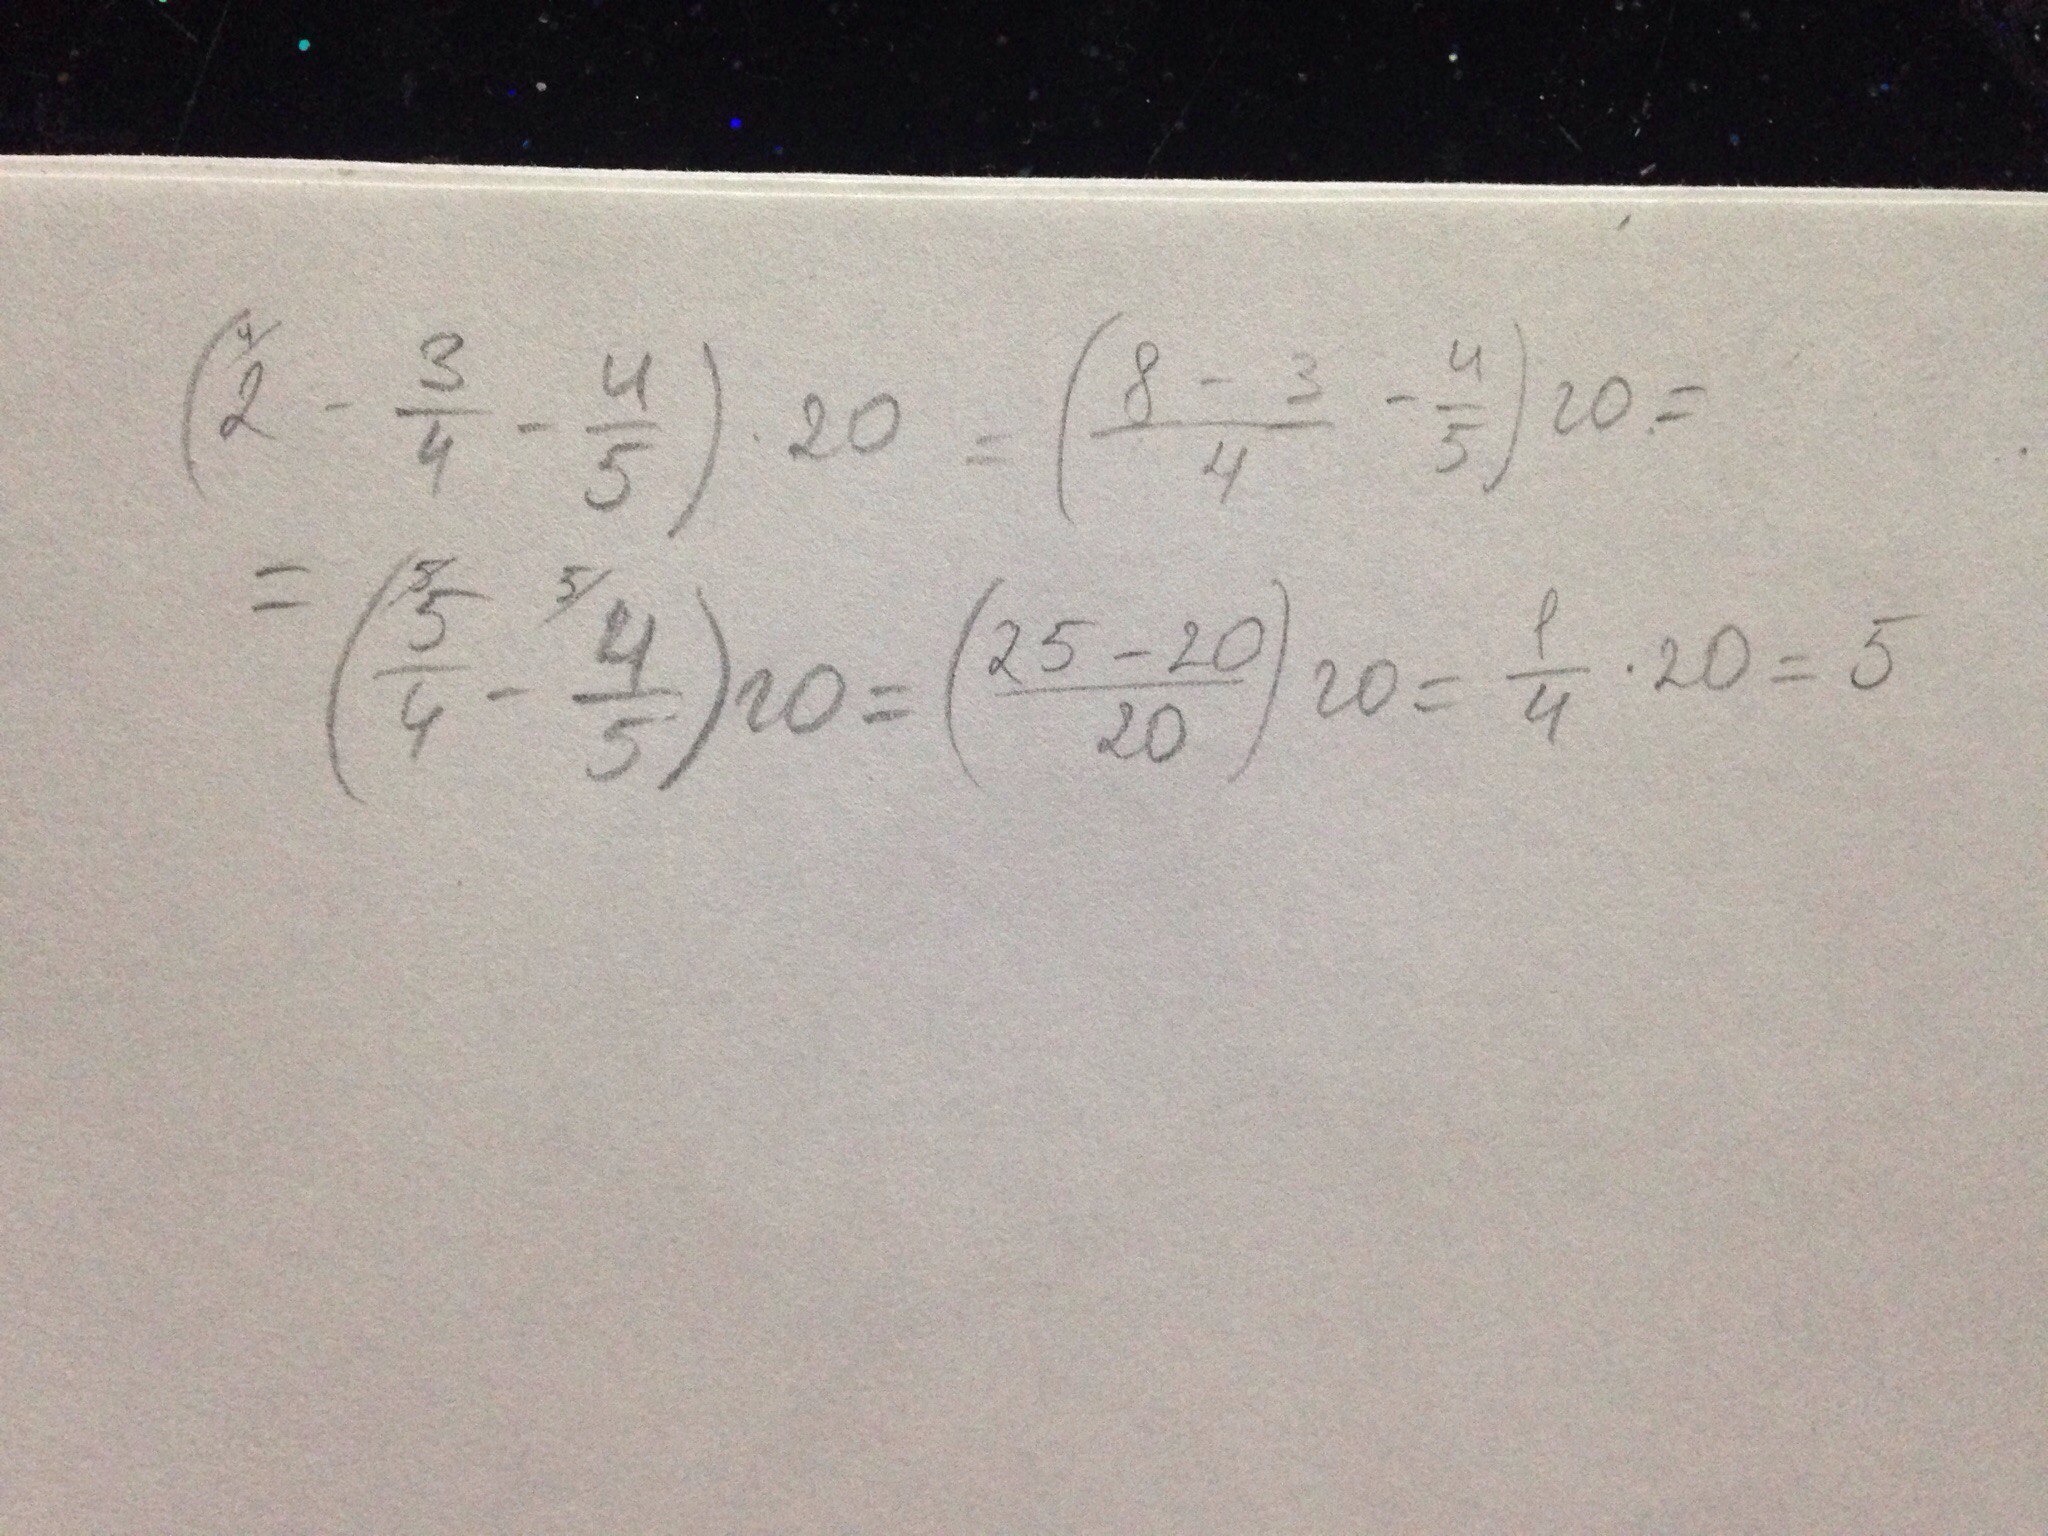 (⁴/2 - 3/4 - 4/5) · 20 = ((8 - 3)/4 - 4/5) 20 =
= (⁵/5/4 - ⁵/4/5) 20 = ((25 - 20)/20) 20 = 1/4 · 20 = 5